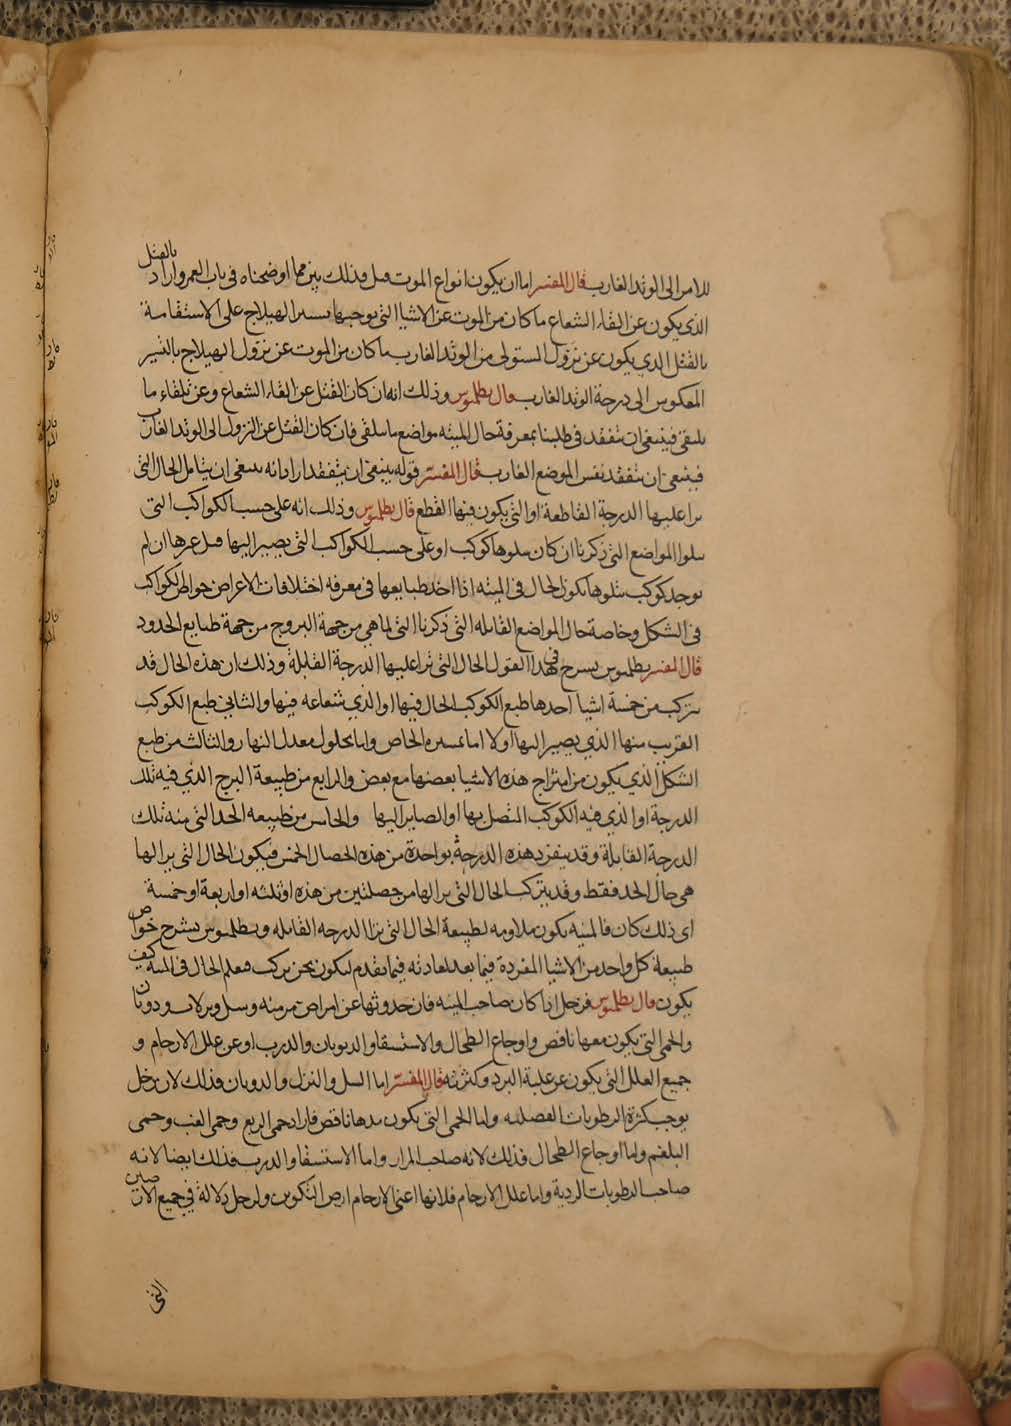 للامر الى الوتد الغارب قال المفسر اما ان يكون انواع الموت قبل فذلك بين مما اوضحناه فى باب العمر واراد بالقتل
الذى يكون عن القاء الشعاع ما كان من الموت عن الاشيا التى يوجبها تسيير الهيلاج على الاستقامة
بالقتل الذى يكون عن نزول المستولى من الوتد الغارب ما كان من الموت عن نزول الهيلاج بالتسير
المعكوس الى درجة الوتد الغارب قال بطلميوس وذلك انه ان كان القتل عن القاء الشعاع وعن تلقاء ما
يلتقى فينبغى ان نتفقد فى طلبنا بمعرفة حال الميته مواضع ما يلتقى فان كان القتل عن النزول الى الوتد الغارب
فينبغى ان نتفقد نفس الموضع الغارب قال المفسر قوله ينبغى ان يتفقد اراد انه ينبغى ان يتامل الحال التى
يرا عليها الدرجة القاطعة او التى يكون فيها القطع قال بطلميوس وذلك انه على حسب الكواكب التى
يتلوا المواضع التى ذكرنا ان كان يتلوها كوكب او على حسب الكواكب التى يصير اليها قبل غيرها ان لم
يوجد كوكب يتلوها يكون الحال فى الميته اذا اخذ طبايعها فى معرفه اختلافات الاعراض خواص الكواكب
فى الشكل وخاصة حال المواضع القاتله التى ذكرنا التى لها هى من جهة البروج من جهة طبايع الحدود
قال المفسر بطلميوس يشرح فى هذا القول الحال التى يرا عليها الدرجة القابلة وذلك ان هذه الحال قد
يتركب من خمسة اشيا احدها طبع الكوكب الحال فيها او الذى شعاعه فيها والثانى طبع الكوكب
القريب منها الذى يصير اليها اولا اما بمسيره الخاص واما بحلول معدل النهار والثالث من طبع
الشكل الذى يكون من امتزاج هذه الاشيا بعضها مع بعض والرابع من طبيعة البرج الذى فيه تلك
الدرجة او الذى فيه الكوكب المتصل بها او الصاير اليها والخامس من طبيعه الحد التى منه تلك
الدرجة القابلة وقد ينفرد هذه الدرجة بواحدة من هذه الخصال الخمس فيكون الحال التى يرا لها
هى حال الحد فقط وقد يتركب الحال التى يرا لها من خصلتين من هذه او ثلثه او اربعة او خمسة
اى ذلك كان فالميته يكون ملاومه لطبيعة الحال التى يرا الدرجه القابله وبطلميوس يشرح خواص
طبيعة كل واحد من الاشيا المفردة فيما بعد لعادته فيما تقدم ليكون نحن نركب فنعلم الحال فى الميته كيف
يكون قال بطلميوس فزحل اذا كان صاحب الميته فان حدوثها عن امراض مزمنه وسل ونزلات وذوبان
والحمى التى يكون معها نافض واوجاع الطحال والاستسقا والذوبان والذرب او عن علل الارحام و
جميع العلل التى يكون عن غلبة البرد وكثرته قال المفسر اما السل والنزل والذوبان فذلك لان زحل
يوجب كثرة الرطوبات الفضليه واما الحمى التى يكون بدها نافض فاراد حمى الربع وحمى الغب وحمى
البلغم واما اوجاع الطحال فذلك لانه صاحب المرار واما الاستسقا والذرب فذلك ايضا لانه
صاحب الرطوبات الردية واما علل الارحام فلانها اعنى الارحام ارض التكوين ولزحل دلالة فى جميع الارضين
التى